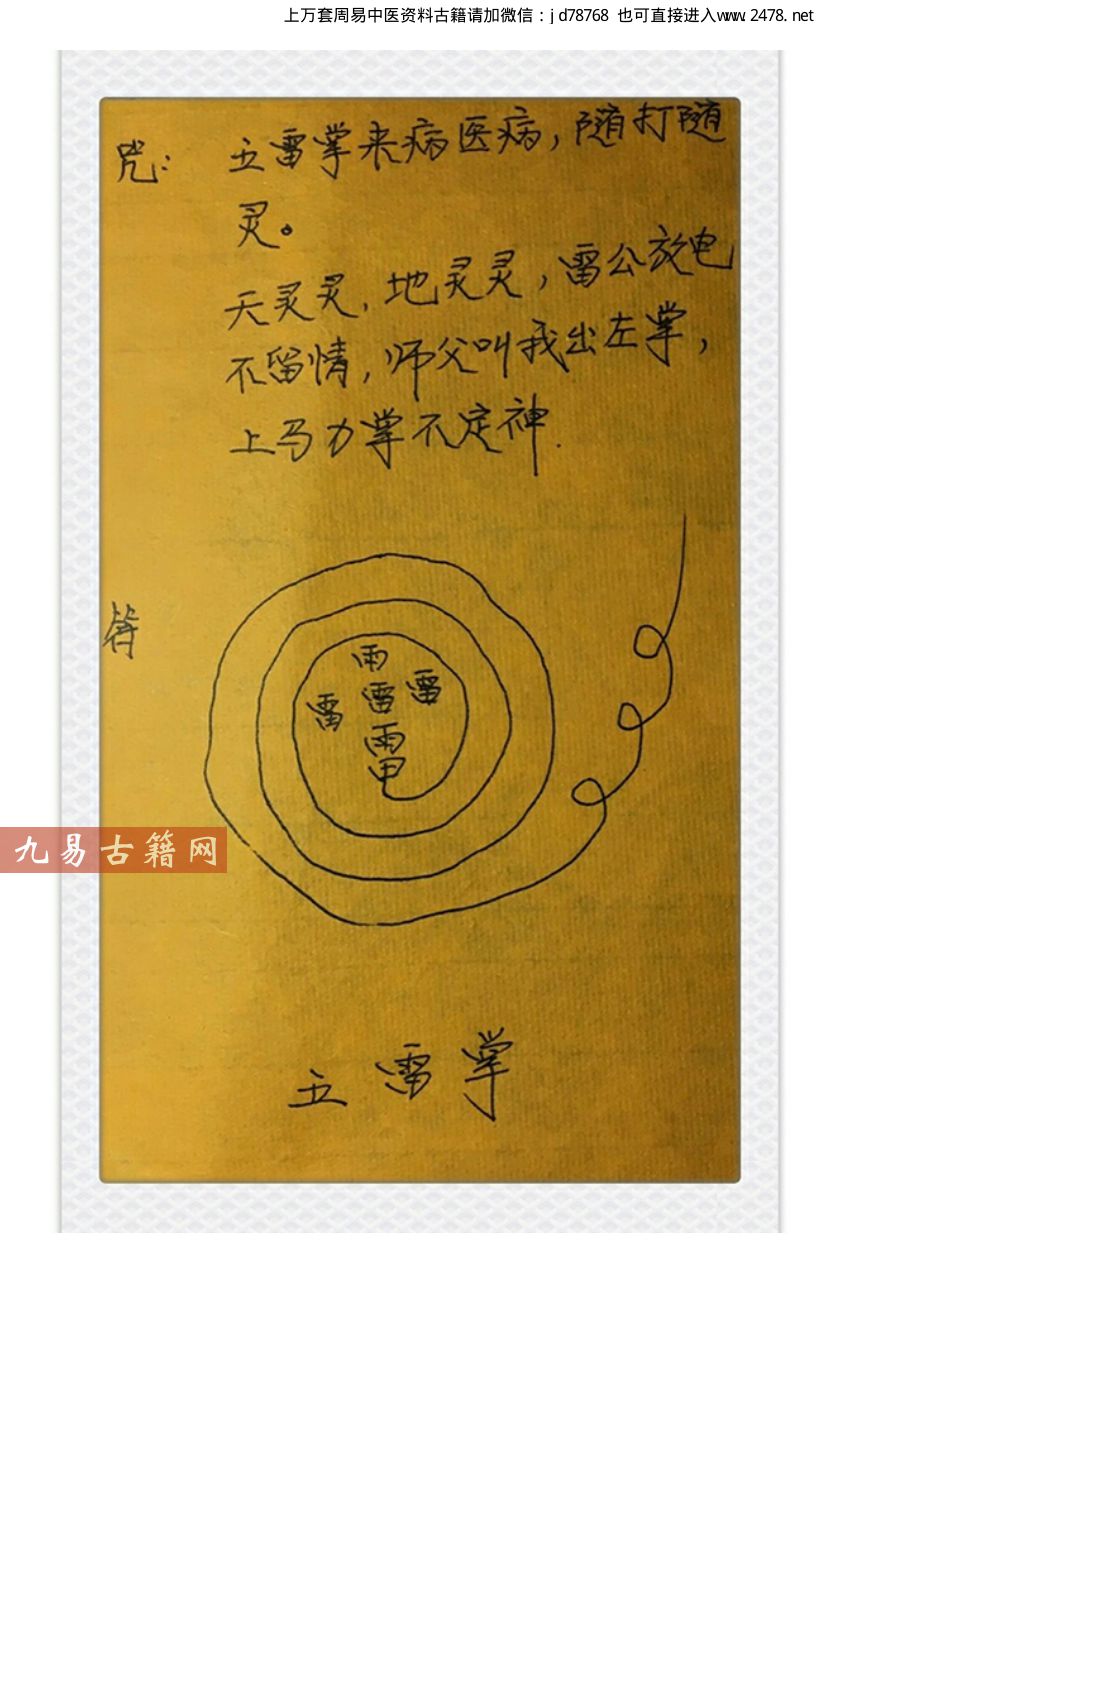 上万套周易中医资料古籍请加微信：jd78768 也可直接进入www.2478.net
咒： 五雷掌来病医病，随打随
灵。
天灵灵，地灵灵，雷公放电
不留情，师父叫我出左掌，
上马力掌不定神.
符
雨
雷 雷 雷
雨
甲
九易古籍网
五雷掌